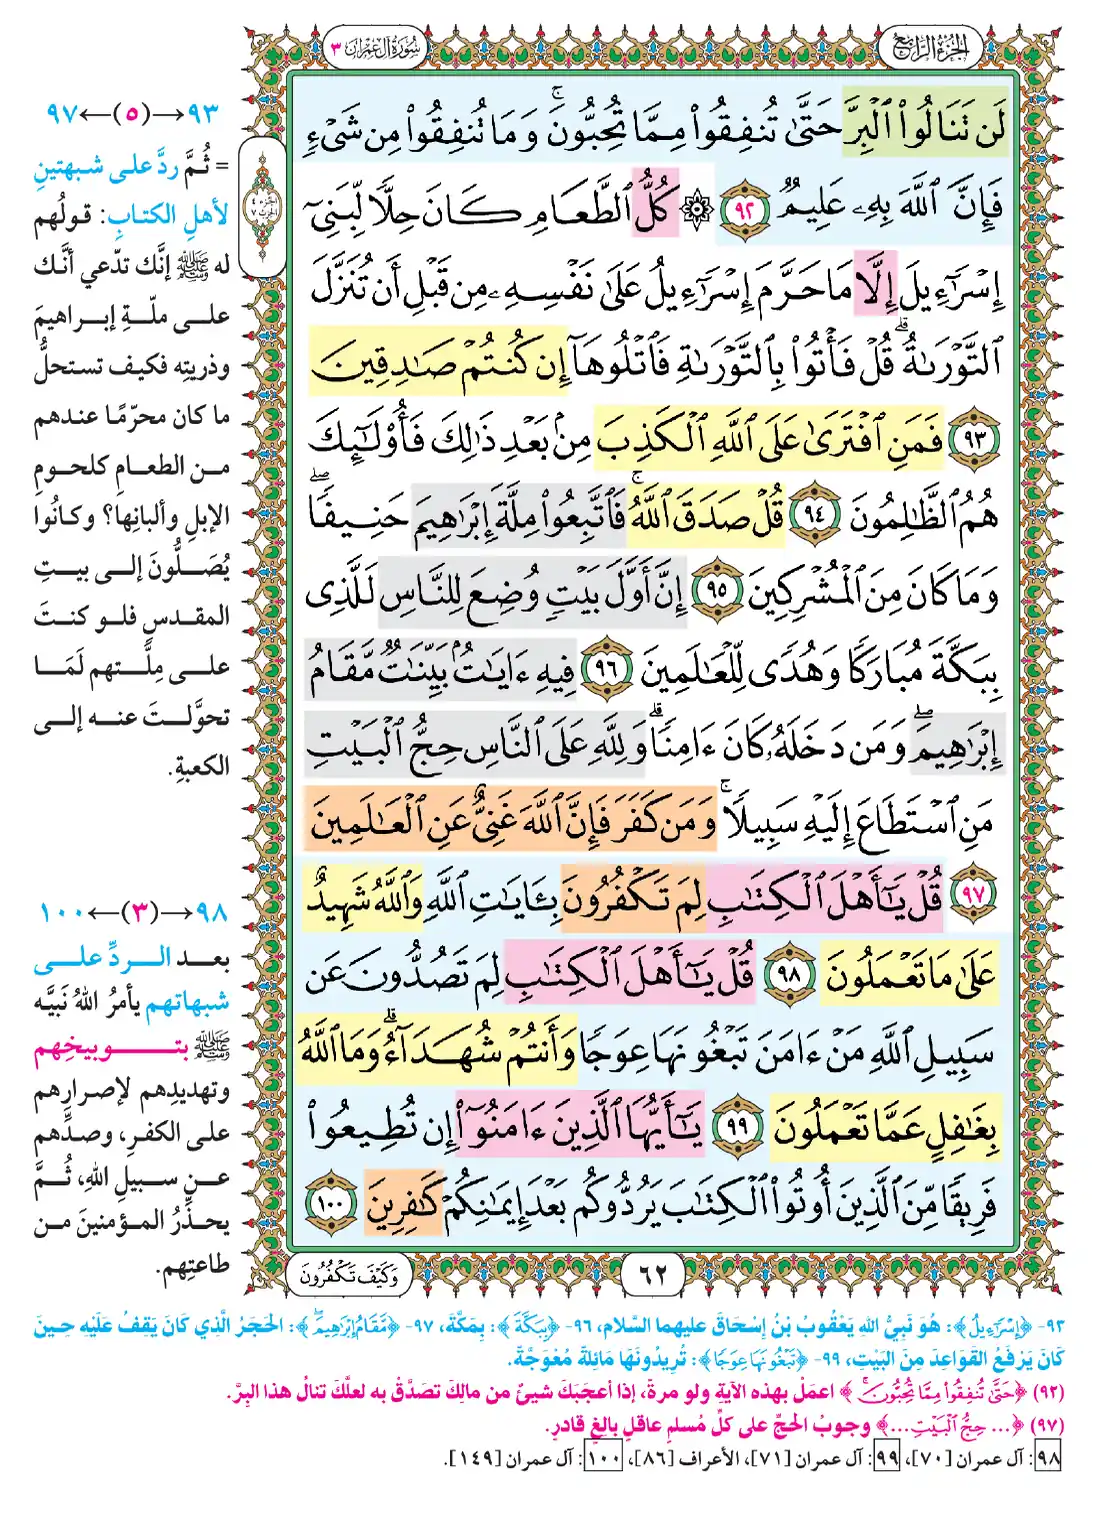 الجزء الرابع
سورة آل عمران ٣
لَن تَنَالُوا۟ ٱلْبِرَّ حَتَّىٰ تُنفِقُوا۟ مِمَّا تُحِبُّونَ ۚ وَمَا تُنفِقُوا۟ مِن شَىْءٍ
فَإِنَّ ٱللَّهَ بِهِۦ عَلِيمٌ ٩٢ ۞ كُلُّ ٱلطَّعَامِ كَانَ حِلًّا لِّبَنِىٓ
إِسْرَٰٓءِيلَ إِلَّا مَا حَرَّمَ إِسْرَٰٓءِيلُ عَلَىٰ نَفْسِهِۦ مِن قَبْلِ أَن تُنَزَّلَ
ٱلتَّوْرَىٰةُ ۗ قُلْ فَأْتُوا۟ بِٱلتَّوْرَىٰةِ فَٱتْلُوهَآ إِن كُنتُمْ صَـٰدِقِينَ
٩٣ فَمَنِ ٱفْتَرَىٰ عَلَى ٱللَّهِ ٱلْكَذِبَ مِنۢ بَعْدِ ذَٰلِكَ فَأُو۟لَـٰٓئِكَ
هُمُ ٱلظَّـٰلِمُونَ ٩٤ قُلْ صَدَقَ ٱللَّهُ ۗ فَٱتَّبِعُوا۟ مِلَّةَ إِبْرَٰهِيمَ حَنِيفًا ۖ
وَمَا كَانَ مِنَ ٱلْمُشْرِكِينَ ٩٥ إِنَّ أَوَّلَ بَيْتٍ وُضِعَ لِلنَّاسِ لَلَّذِى
بِبَكَّةَ مُبَارَكًا وَهُدًى لِّلْعَـٰلَمِينَ ٩٦ فِيهِ ءَايَـٰتٌۢ بَيِّنَـٰتٌ مَّقَامُ
إِبْرَٰهِيمَ ۖ وَمَن دَخَلَهُۥ كَانَ ءَامِنًا ۗ وَلِلَّهِ عَلَى ٱلنَّاسِ حِجُّ ٱلْبَيْتِ
مَنِ ٱسْتَطَاعَ إِلَيْهِ سَبِيلًا ۚ وَمَن كَفَرَ فَإِنَّ ٱللَّهَ غَنِىٌّ عَنِ ٱلْعَـٰلَمِينَ
٩٧ قُلْ يَـٰٓأَهْلَ ٱلْكِتَـٰبِ لِمَ تَكْفُرُونَ بِـَٔايَـٰتِ ٱللَّهِ وَٱللَّهُ شَهِيدٌ
عَلَىٰ مَا تَعْمَلُونَ ٩٨ قُلْ يَـٰٓأَهْلَ ٱلْكِتَـٰبِ لِمَ تَصُدُّونَ عَن
سَبِيلِ ٱللَّهِ مَنْ ءَامَنَ تَبْغُونَهَا عِوَجًا وَأَنتُمْ شُهَدَآءُ ۗ وَمَا ٱللَّهُ
بِغَـٰفِلٍ عَمَّا تَعْمَلُونَ ٩٩ يَـٰٓأَيُّهَا ٱلَّذِينَ ءَامَنُوٓا۟ إِن تُطِيعُوا۟
فَرِيقًا مِّنَ ٱلَّذِينَ أُوتُوا۟ ٱلْكِتَـٰبَ يَرُدُّوكُم بَعْدَ إِيمَـٰنِكُمْ كَـٰفِرِينَ ١٠٠
٦٢
وَكَيْفَ تَكْفُرُونَ
٩٣→(٥)←٩٧
= ثُمَّ ردَّ على شبهتينِ
لأهلِ الكتابِ: قولُهم
له ﷺ إنَّك تدّعي أنَّك
على ملّةِ إبراهيمَ
وذريتِه فكيف تستحلُّ
ما كان محرّمًا عندهم
من الطعامِ كلحومِ
الإبلِ وألبانِها؟ وكانُوا
يُصَلُّونَ إلى بيتِ
المقدسِ فلو كنتَ
على مِلَّتهم لَمَا
تحوَّلتَ عنه إلى
الكعبةِ.
٩٨→(٣)←١٠٠
بعد الردِّ على
شبهاتهم يأمرُ اللهُ نَبيَّه
ﷺ بتوبيخِهم
وتهديدِهم لإصرارِهم
على الكفرِ، وصدِّهم
عن سبيلِ اللهِ، ثُمَّ
يحذِّرُ المؤمنينَ من
طاعتِهم.
٩٣- ﴿إِسْرَٰٓءِيلُ﴾: هُوَ نَبِيُّ اللهِ يَعْقُوبُ بْنُ إِسْحَاقَ عليهما السَّلام، ٩٦- ﴿بِبَكَّةَ﴾: بِمَكَّةَ، ٩٧- ﴿مَّقَامُ إِبْرَٰهِيمَ ۖ﴾: الحَجَرُ الَّذِي كَانَ يَقِفُ عَلَيْهِ حِينَ
كَانَ يَرْفَعُ القَوَاعِدَ مِنَ البَيْتِ، ٩٩- ﴿تَبْغُونَهَا عِوَجًا﴾: تُرِيدُونَهَا مَائِلَةً مُعْوَجَّةً.
(٩٢) ﴿حَتَّىٰ تُنفِقُوا۟ مِمَّا تُحِبُّونَ ۚ﴾ اعمَلْ بهذه الآيةِ ولو مرةً، إذا أعجَبَكَ شيئٌ من مالِكَ تصَدَّقْ به لعلَّكَ تنالُ هذا البِرَّ.
(٩٧) ﴿... حِجُّ ٱلْبَيْتِ ...﴾ وجوبُ الحجِّ على كلِّ مُسلمٍ عاقلٍ بالغٍ قادرٍ.
٩٨: آل عمران [٧٠]، ٩٩: آل عمران [٧١]، الأعراف [٨٦]، ١٠٠: آل عمران [١٤٩].